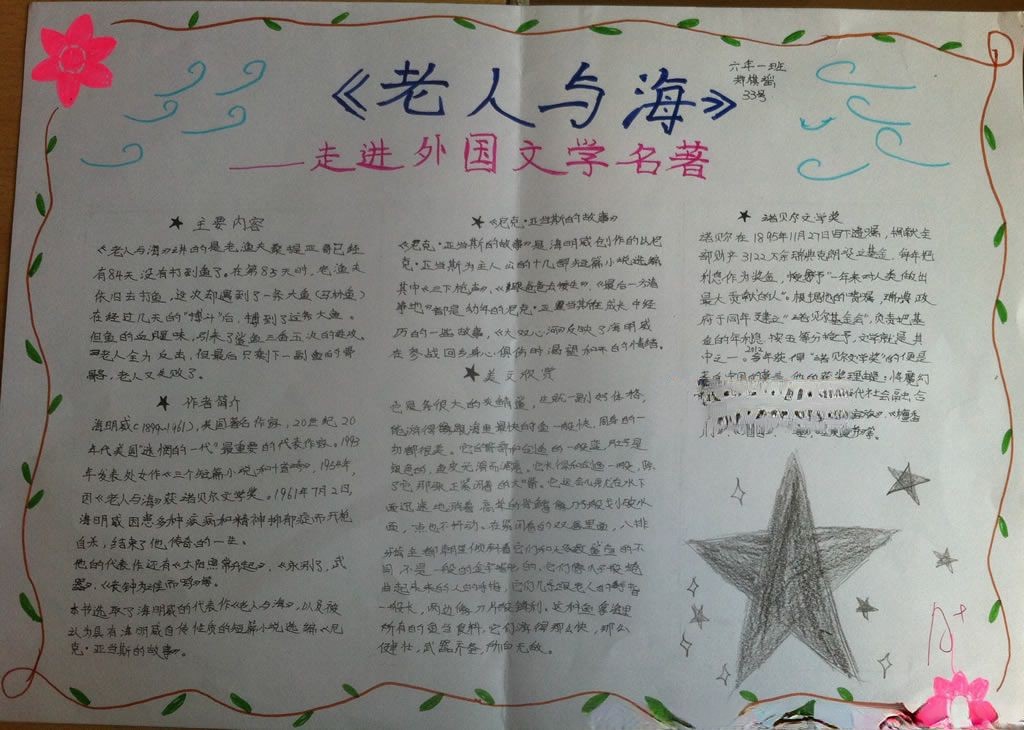 《老人与海》
六年一班
郑棋
33号
——走进外国文学名著
★ 主要内容
《老人与海》讲的是老渔夫桑提亚哥已经
有84天没有打到鱼了。在第85天时，老渔夫
依旧去打鱼，这次却遇到了一条大鱼
在经过几天的“搏斗”后，捕到了这条大鱼。
但鱼的血腥味，引来了鲨鱼三番五次的进攻。
老人全力反击，但最后只剩下一副鱼的骨
老人又失败了。
★ 作者简介
海明威(1899-1961)，美国著名作家，20世纪20
年代美国“迷惘的一代”最重要的代表作家。19
年发表处女作《三个短篇小说和十首诗》，1954年，
因《老人与海》获诺贝尔文学奖。1961年7月2日，
海明威因患多种疾病和精神抑郁症而开枪
自杀，结束了他传奇的一生。
他的代表作还有《太阳照常升起》、《永别了，武
器》、《丧钟为谁而鸣》等。
本书选取了海明威的代表作《老人与海》，以及被
认为具有海明威自传性质的短篇小说选编《尼
克·亚当斯的故事》。
★ 《尼克·亚当斯的故事》
《尼克·亚当斯的故事》是海明威创作的以尼
克·亚当斯为主人公的十几部短篇小说选编
其中《三下枪声》、《最后一方净
土》都是幼年的尼克·亚当斯在成长中经
历的一些故事，《大双心河》反映了海明威
在参战回乡身心俱伤时渴望和平的情绪。
★ 美文欣赏
也是条很大的灰鲭鲨，生就一副好体格，
能游得跟海里最快的鱼一般快，周身的一
切都很美，
蓝色的，鱼皮光滑而漂亮。
了它那张正紧闭着的大嘴，它这会儿就在水下
面迅速地游着，高耸的脊鳍像刀子般划破水
面，一点也不抖动。在紧闭着的双唇里面，八排
牙齿全都朝里倾斜着它们和大多数鲨鱼的不
同，不是一般的金字塔形的，它们像爪子般蜷
曲起来的人的手指，它们几乎跟老人的手指
一般长，两边像刀片般锋利，这种鱼
所有的鱼当食料，它们游得那么快，那么
健壮，武器齐备，所向无敌。
★ 诺贝尔文学奖
诺贝尔在1895年11月27日写下遗嘱，捐献全
部财产3122万余瑞典克朗设立基金，每年把
利息作为奖金，授予“一年来对人类做出
最大贡献的人”。根据他的遗嘱，瑞典政
府于同年建立“诺贝尔基金会”，负责把基
金的年利息按五等分授予，文学就是其
中之一。2012年获得“诺贝尔文学奖”的便是
A+